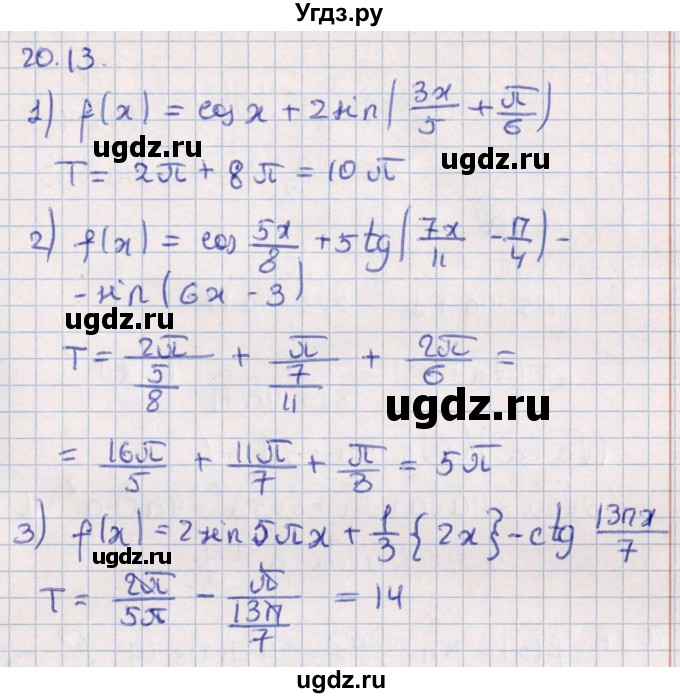 Угдз.ру
20.13.
1) f(x) = cos x + 2 sin( 3x/5 + π/6 )
ugdz.ru
ugdz.ru
T = 2π + 8π = 10π
2) f(x) = cos 5x/8 + 5 tg( 7x/11 - π/4 ) -
- sin (6x - 3)
ugdz.ru
T = 2π/(5/8) + π/(7/11) + 2π/6 =
ugdz.ru
= 16π/5 + 11π/7 + π/3 = 5π
3) f(x) = 2 sin 5πx + 1/3 {2x} - ctg 13πx/7
ugdz.ru
T = 2π/5π - π/(13π/7) = 14
ugdz.ru
ugdz.ru